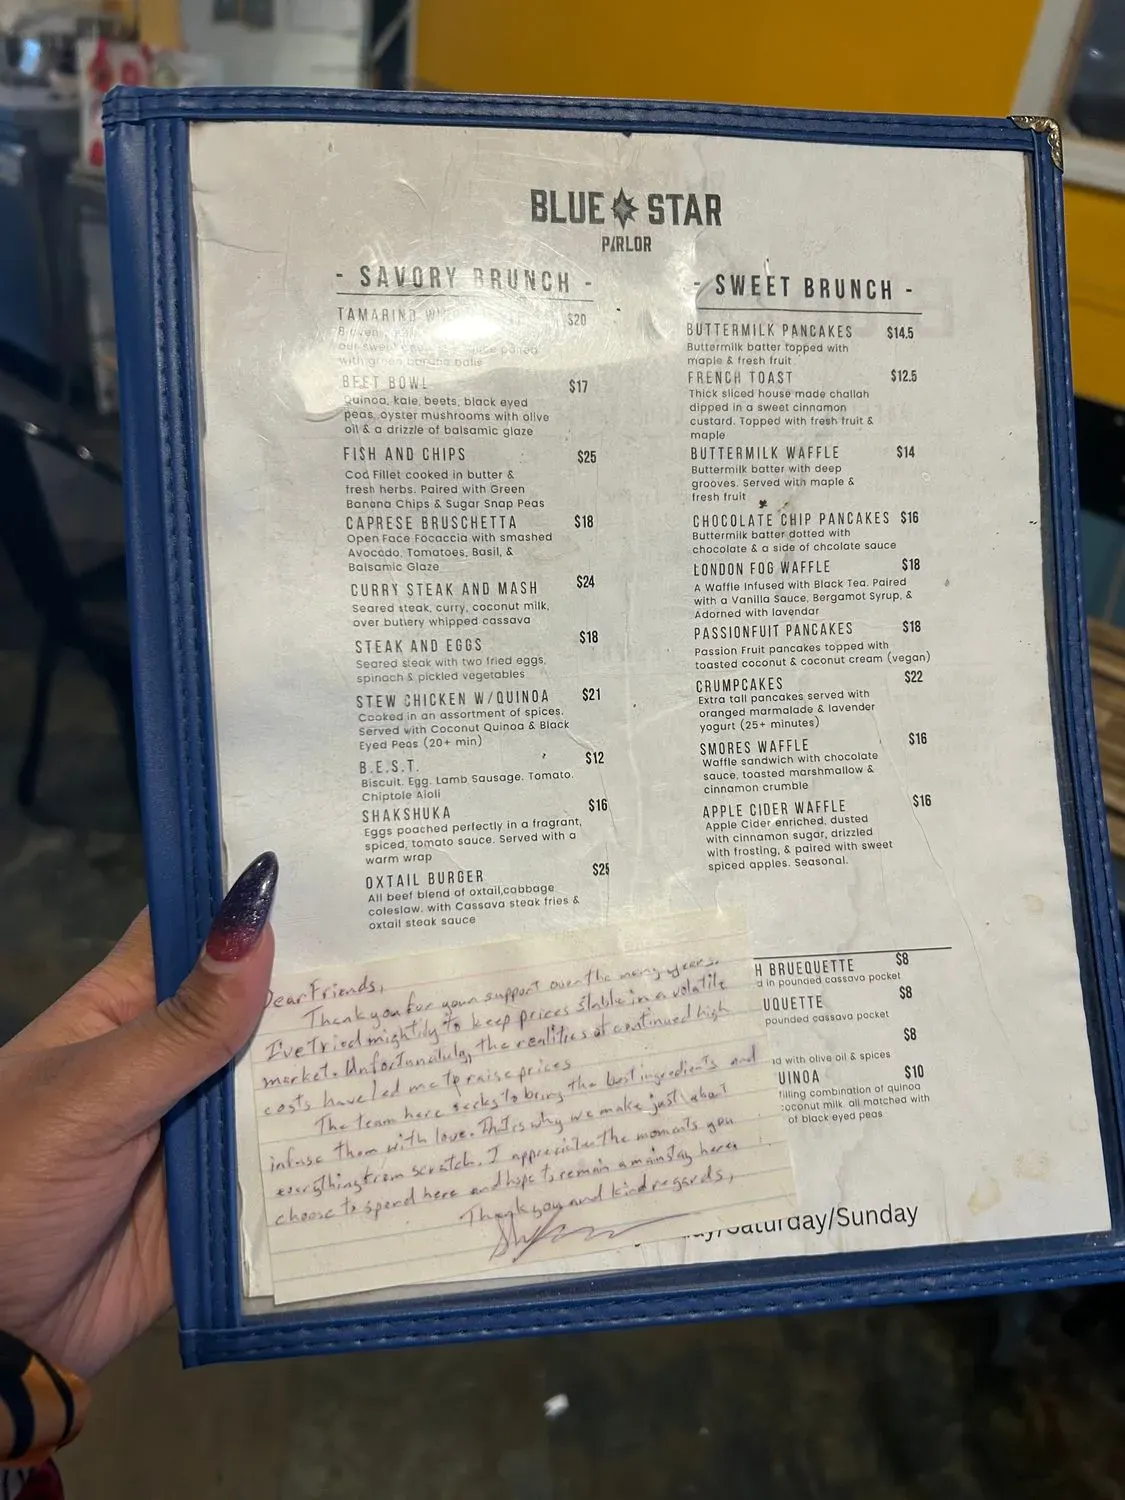 BLUE STAR
PARLOR
- SAVORY BRUNCH -
TAMARIND $20
our sweet
with green banana balls
BEET BOWL $17
Quinoa, kale, beets, black eyed
peas, oyster mushrooms with olive
oil & a drizzle of balsamic glaze
FISH AND CHIPS $25
Cod Fillet cooked in butter &
fresh herbs. Paired with Green
Banana Chips & Sugar Snap Peas
CAPRESE BRUSCHETTA $18
Open Face Focaccia with smashed
Avocado, Tomatoes, Basil, &
Balsamic Glaze
CURRY STEAK AND MASH $24
Seared steak, curry, coconut milk,
over buttery whipped cassava
STEAK AND EGGS $18
Seared steak with two fried eggs,
spinach & pickled vegetables
STEW CHICKEN W/QUINOA $21
Cooked in an assortment of spices.
Served with Coconut Quinoa & Black
Eyed Peas (20+ min)
B.E.S.T. $12
Biscuit. Egg. Lamb Sausage. Tomato.
Chiptole Aioli
SHAKSHUKA $16
Eggs poached perfectly in a fragrant,
spiced, tomato sauce. Served with a
warm wrap
OXTAIL BURGER $25
All beef blend of oxtail,cabbage
coleslaw. with Cassava steak fries &
oxtail steak sauce
- SWEET BRUNCH -
BUTTERMILK PANCAKES $14.5
Buttermilk batter topped with
maple & fresh fruit
FRENCH TOAST $12.5
Thick sliced house made challah
dipped in a sweet cinnamon
custard. Topped with fresh fruit &
maple
BUTTERMILK WAFFLE $14
Buttermilk batter with deep
grooves. Served with maple &
fresh fruit
CHOCOLATE CHIP PANCAKES $16
Buttermilk batter dotted with
chocolate & a side of chcolate sauce
LONDON FOG WAFFLE $18
A Waffle Infused with Black Tea. Paired
with a Vanilla Sauce, Bergamot Syrup, &
Adorned with lavendar
PASSIONFUIT PANCAKES $18
Passion Fruit pancakes topped with
toasted coconut & coconut cream (vegan)
CRUMPCAKES $22
Extra tall pancakes served with
oranged marmalade & lavender
yogurt (25+ minutes)
SMORES WAFFLE $16
Waffle sandwich with chocolate
sauce, toasted marshmallow &
cinnamon crumble
APPLE CIDER WAFFLE $16
Apple Cider enriched, dusted
with cinnamon sugar, drizzled
with frosting, & paired with sweet
spiced apples. Seasonal.
H BRUEQUETTE $8
d in pounded cassava pocket
UQUETTE $8
pounded cassava pocket
$8
d with olive oil & spices
UINOA $10
filling combination of quinoa
coconut milk all matched with
of black eyed peas
Dear Friends,
Thank you for your support over the many years.
I've tried mightily to keep prices stable in a volatile
market. Unfortunately, the realities of continued high
costs have led me to raise prices
The team here seeks to bring the best ingredients and
infuse them with love. That's why we make just about
everything from scratch. I appreciate the moments you
choose to spend here and hope to remain a mainstay here.
Thank you and kind regards,
/Saturday/Sunday